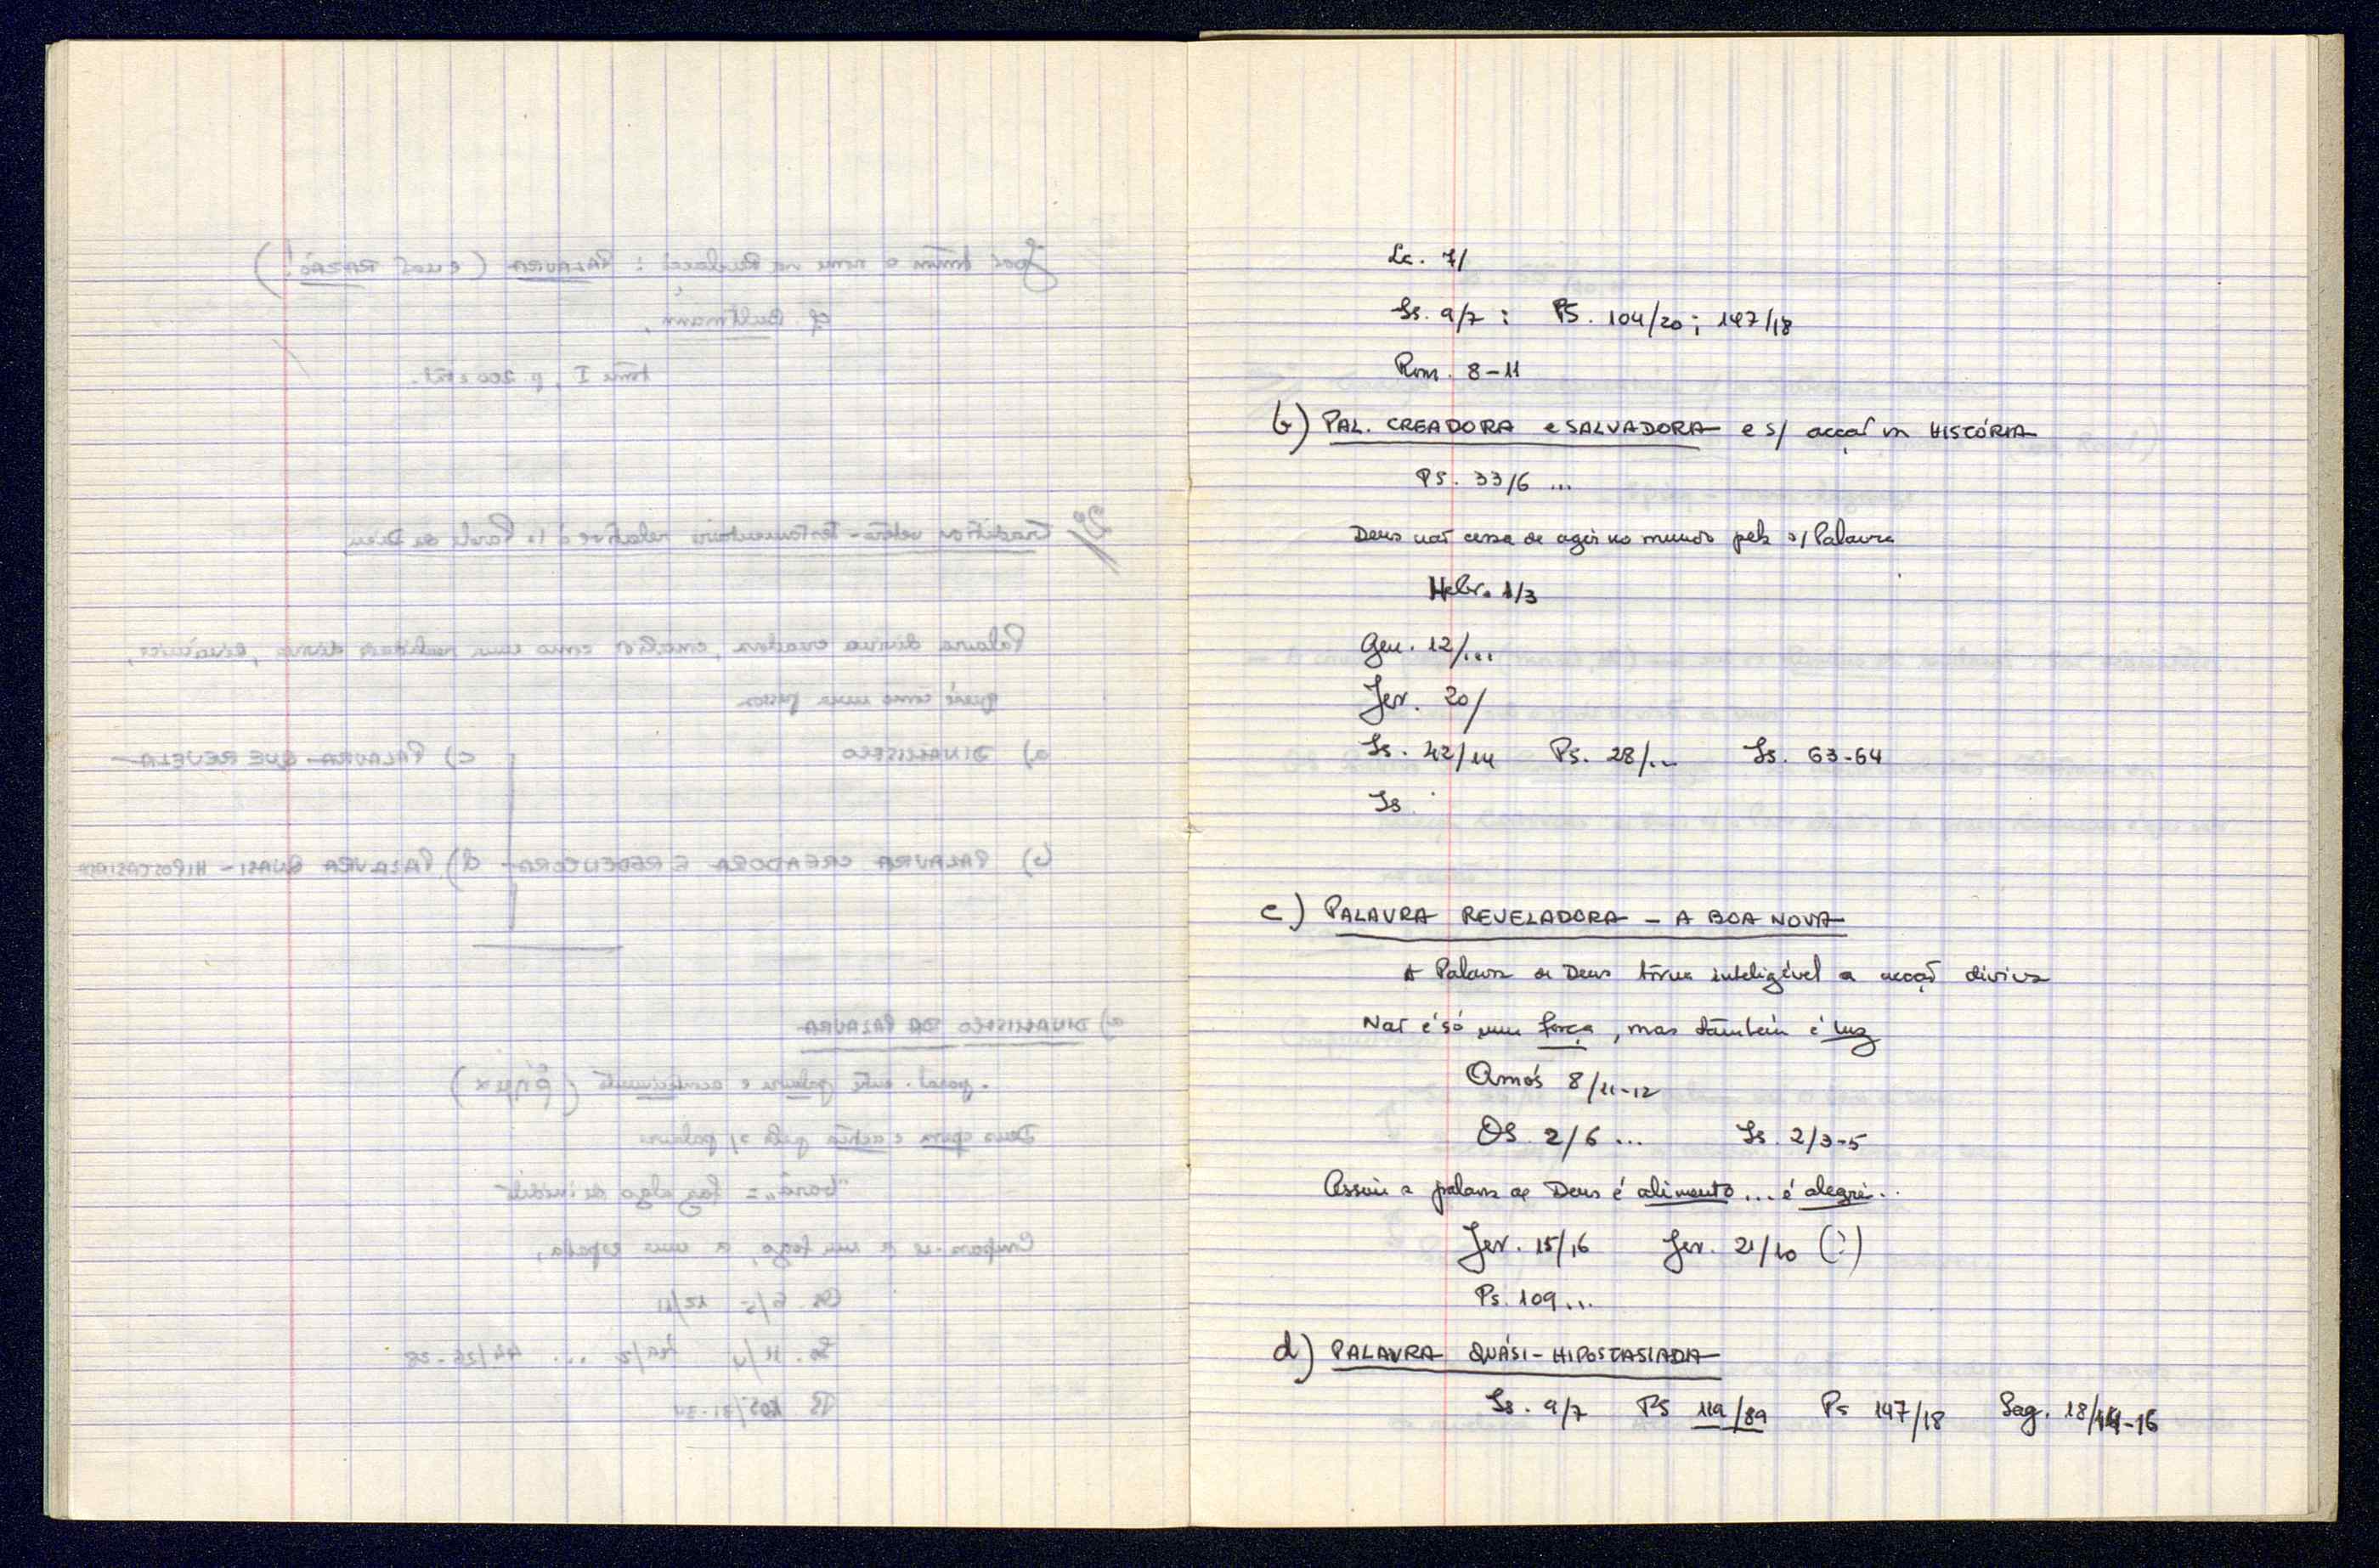 Lc. 7/
Is. 9/7 ; PS. 104/20 ; 147/18
Rom. 8-11
b) PAL. CREADORA e SALVADORA e s/ acção na HISTÓRIA
PS. 33/6 ...
Deus não cessa de agir no mundo pela s/ Palavra
Hebr. 1/3
Gen. 12/...
Jer. 20/
Is. 42/14 Ps. 28/... Is. 63-64
Is.
c) PALAVRA REVELADORA - A BOA NOVA
A Palavra de Deus torna inteligível a acção divina
Não é só uma força, mas também é luz
Amós 8/11-12
OS. 2/6 ... Is. 2/3-5
Assim a palavra de Deus é alimento ... é alegria..
Jer. 15/16 Jer. 21/10 (?)
Ps. 109...
d) PALAVRA QUÁSI-HIPOSTASIADA
Is. 9/7 PS 119/89 Ps 147/18 Sag. 18/14-16